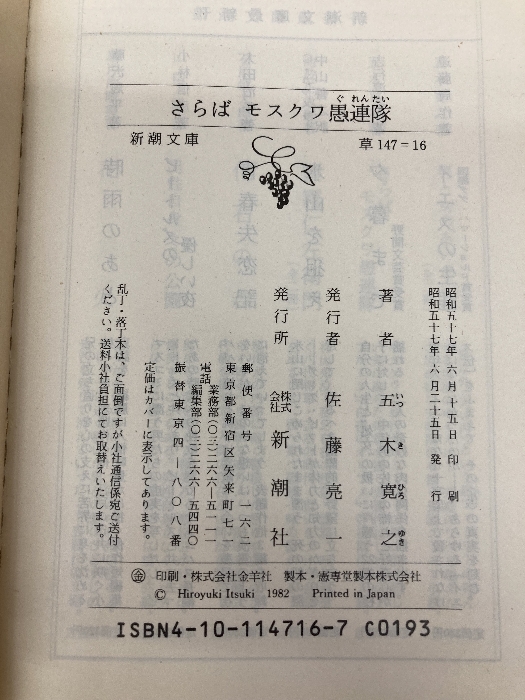 さらば モスクワ愚連隊
ぐれんたい
新潮文庫
草147=16
昭和五十七年 六月 十五日 印刷
昭和五十七年 六月二十五日 発行
著者 五木寛之
いつ き ひろ ゆき
発行者 佐藤亮一
発行所 株式会社 新潮社
郵便番号 一六二
東京都新宿区矢来町七一
電話 業務部(〇三)二六六―五一一一
編集部(〇三)二六六―五四四〇
振替東京四―八〇八番
定価はカバーに表示してあります。
乱丁・落丁本は、ご面倒ですが小社通信係宛ご送付
ください。送料小社負担にてお取替えいたします。
金 印刷・株式会社金羊社 製本・憲専堂製本株式会社
© Hiroyuki Itsuki 1982 Printed in Japan
ISBN4-10-114716-7 C0193